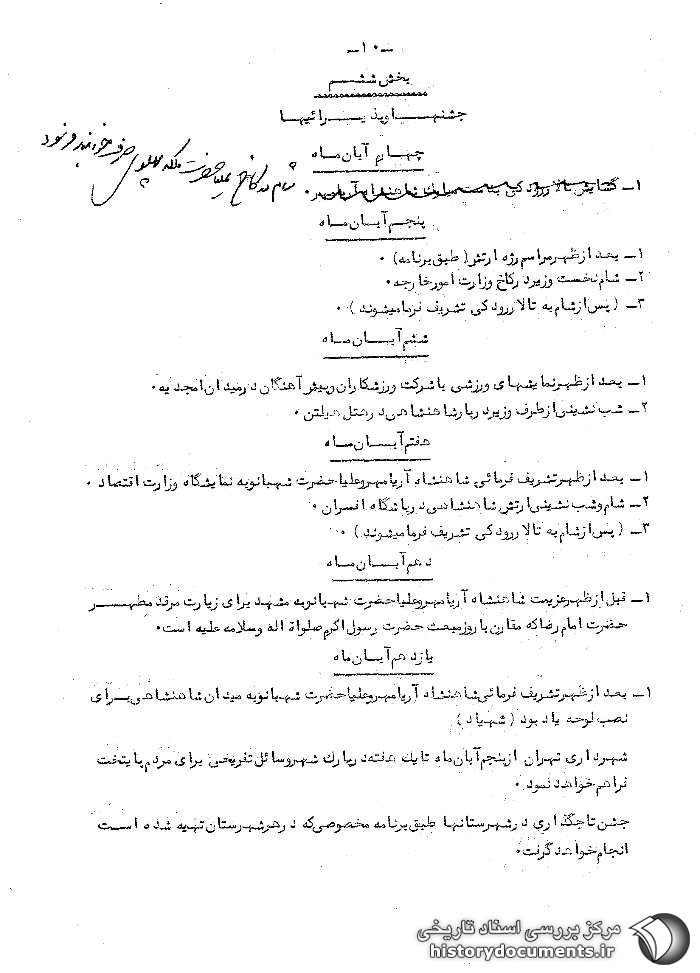 -۱۰-
بخش ششم
جشنها و پذیرائیها
چهارم آبان ماه
شام در کاخ علیاحضرت ملکه پهلوی صرف خواهند فرمود
۱- گشایش تالار رودکی
پنجم آبان ماه
۱- بعد از ظهر مراسم رژه ارتش (طبق برنامه) .
۲- شام نخست وزیر در کاخ وزارت امور خارجه .
۳- (پس از شام به تالار رودکی تشریف فرما میشوند) .
ششم آبان ماه
۱- بعد از ظهر نمایشهای ورزشی با شرکت ورزشکاران و پیش آهنگان در میدان امجدیه .
۲- شب نشینی از طرف وزیر دربار شاهنشاهی در هتل هیلتن .
هفتم آبان ماه
۱- بعد از ظهر تشریف فرمائی شاهنشاه آریامهر و علیاحضرت شهبانو به نمایشگاه وزارت اقتصاد .
۲- شام و شب نشینی ارتش شاهنشاهی در باشگاه افسران .
۳- (پس از شام به تالار رودکی تشریف فرما میشوند) .
دهم آبان ماه
۱- قبل از ظهر عزیمت شاهنشاه آریامهر و علیاحضرت شهبانو به مشهد برای زیارت مرقد مطهر
حضرت امام رضا که مقارن با روز مبعث حضرت رسول اکرم صلواة اله وسلامه علیه است .
یازدهم آبان ماه
۱- بعد از ظهر تشریف فرمائی شاهنشاه آریامهر و علیاحضرت شهبانو به میدان شاهنشاهی برای
نصب لوحه یادبود (شهیاد)
شهرداری تهران از پنجم آبان ماه تا یک هفته در پارک شهر وسائل تفریحی برای مردم پایتخت
فراهم خواهد نمود .
جشن تاجگذاری در شهرستانها طبق برنامه مخصوصی که در هر شهرستان تهیه شده است
انجام خواهد گرفت .
مرکز بررسی اسناد تاریخی
historydocuments.ir